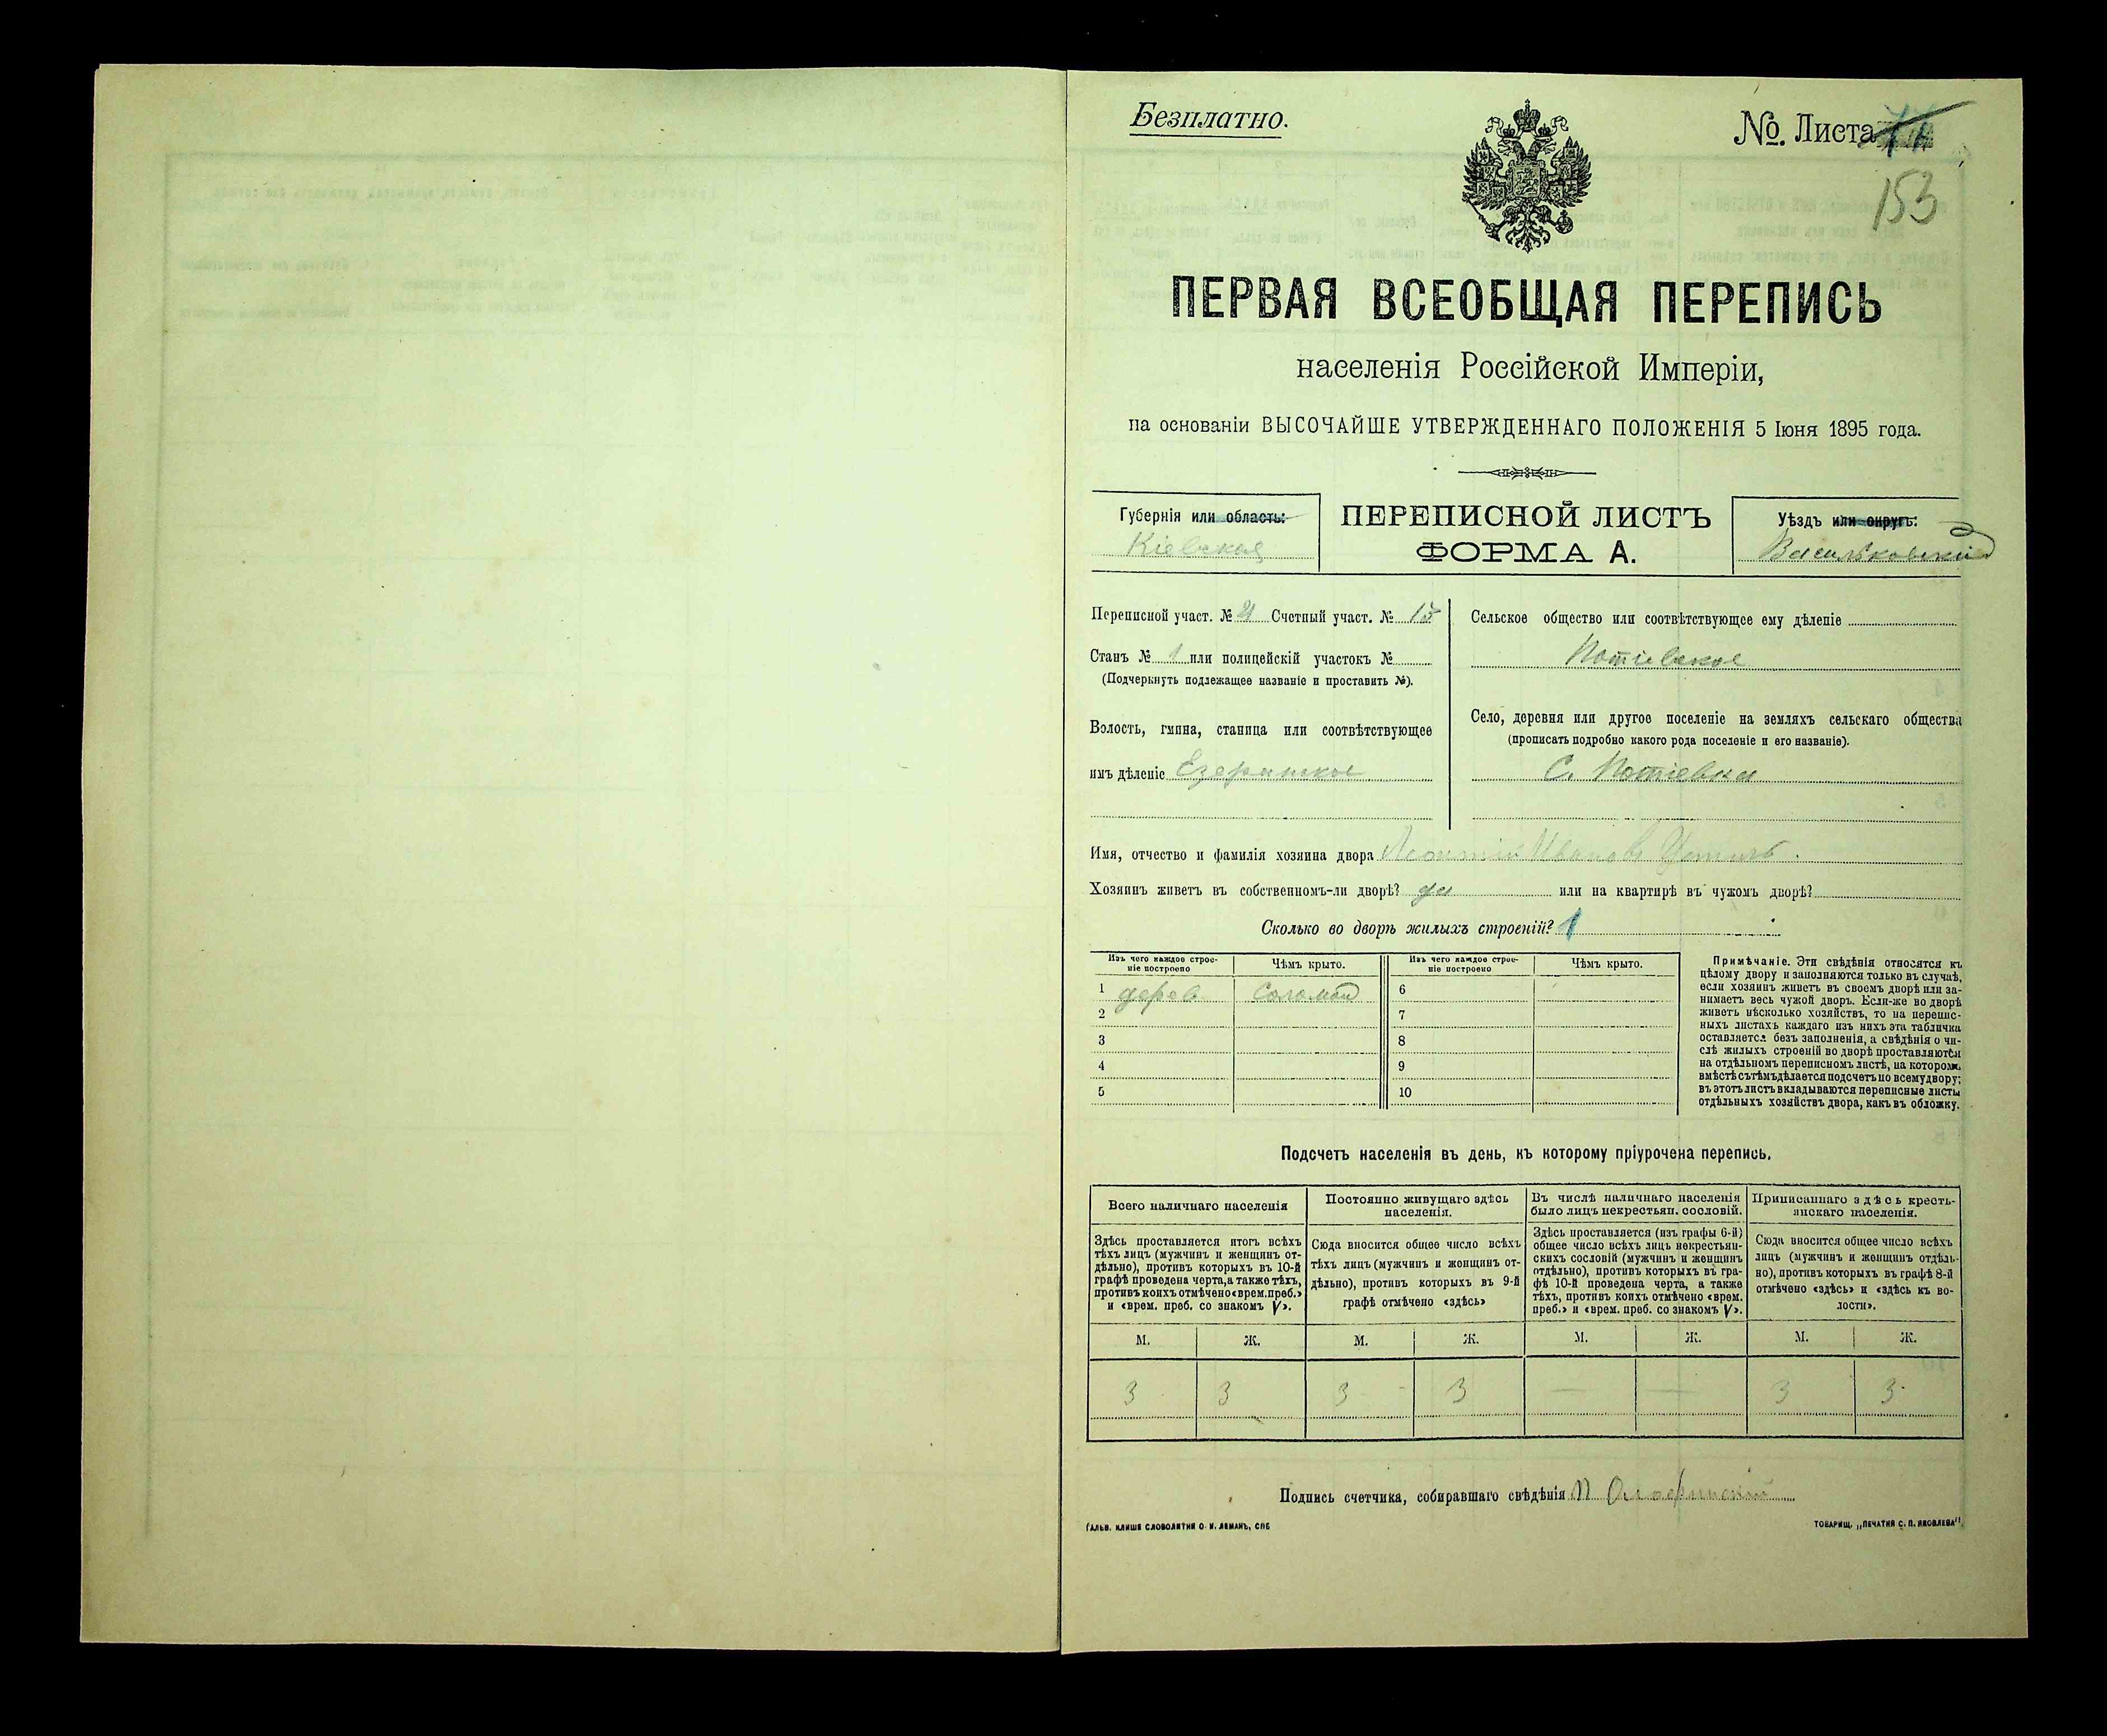 Безплатно.
№. Листа
153
ПЕРВАЯ ВСЕОБЩАЯ ПЕРЕПИСЬ
населенія Россійской Имперіи,
на основаніи ВЫСОЧАЙШЕ УТВЕРЖДЕННАГО ПОЛОЖЕНІЯ 5 Іюня 1895 года.
Губернія или область:
Кіевская
ПЕРЕПИСНОЙ ЛИСТЪ
ФОРМА А.
Уѣздъ или округъ:
Васильковскій
Переписной участ. № Счетный участ. №
Станъ № 1 или полицейскій участокъ №
(Подчеркнуть подлежащее названіе и проставить №).
Волость, гмина, станица или соотвѣтствующее
имъ дѣленіе
Сельское общество или соотвѣтствующее ему дѣленіе
Потіевское
Село, деревня или другое поселеніе на земляхъ сельскаго общества
(прописать подробно какого рода поселеніе и его названіе).
С. Потіевка
Имя, отчество и фамилія хозяина двора Леонтій Ивановъ
Хозяинъ живетъ въ собственномъ-ли дворѣ? да или на квартирѣ въ чужомъ дворѣ?
Сколько во дворѣ жилыхъ строеній? 1
Изъ чего каждое строе-
ніе построено
Чѣмъ крыто.
Изъ чего каждое строе-
ніе построено
Чѣмъ крыто.
1 дерев. Соломой 6
2 7
3 8
4 9
5 10
Примѣчаніе. Эти свѣдѣнія относятся къ
цѣлому двору и заполняются только въ случаѣ,
если хозяинъ живетъ въ своемъ дворѣ или за-
нимаетъ весь чужой дворъ. Если-же во дворѣ
живетъ нѣсколько хозяйствъ, то на перепис-
ныхъ листахъ каждаго изъ нихъ эта табличка
оставляется безъ заполненія, а свѣдѣнія о чи-
слѣ жилыхъ строеній во дворѣ проставляются
на отдѣльномъ переписномъ листѣ, на которомъ
вмѣстѣ съ тѣмъ дѣлается подсчетъ по всему двору;
въ этотъ листъ вкладываются переписные листы
отдѣльныхъ хозяйствъ двора, какъ въ обложку.
Подсчетъ населенія въ день, къ которому пріурочена перепись.
Всего наличнаго населенія
Здѣсь проставляется итогъ всѣхъ
тѣхъ лицъ (мужчинъ и женщинъ от-
дѣльно), противъ которыхъ въ 10-й
графѣ проведена черта, а также тѣхъ,
противъ коихъ отмѣчено «врем. преб.»
и «врем. преб. со знакомъ V».
Постоянно живущаго здѣсь
населенія.
Сюда вносится общее число всѣхъ
тѣхъ лицъ (мужчинъ и женщинъ от-
дѣльно), противъ которыхъ въ 9-й
графѣ отмѣчено «здѣсь»
Въ числѣ наличнаго населенія
было лицъ некрестьян. сословій.
Здѣсь проставляется (изъ графы 6-й)
общее число всѣхъ лицъ некрестьян-
скихъ сословій (мужчинъ и женщинъ
отдѣльно), противъ которыхъ въ гра-
фѣ 10-й проведена черта, а также
тѣхъ, противъ коихъ отмѣчено «врем.
преб.» и «врем. преб. со знакомъ V».
Приписаннаго здѣсь кресть-
янскаго населенія.
Сюда вносится общее число всѣхъ
лицъ (мужчинъ и женщинъ отдѣль-
но), противъ которыхъ въ графѣ 8-й
отмѣчено «здѣсь» и «здѣсь къ во-
лости».
М. Ж. М. Ж. М. Ж. М. Ж.
3 3 3 3 — — 3 3
Подпись счетчика, собиравшаго свѣдѣнія
ГАЛЬВ. КЛИШЕ СЛОВОЛИТНИ О. И. ЛЕМАНЪ, СПБ
ТОВАРИЩ. „ПЕЧАТНЯ С. П. ЯКОВЛЕВА".